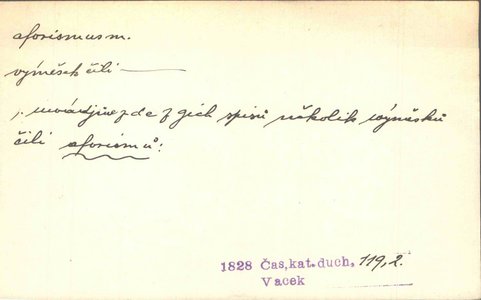 aforismus m.
výněsek čili ———
; uvádjme zde z gich spisů několik wýněsků
čili aforismů:
1828 Čas. kat. duch. 119, 2.
Vacek